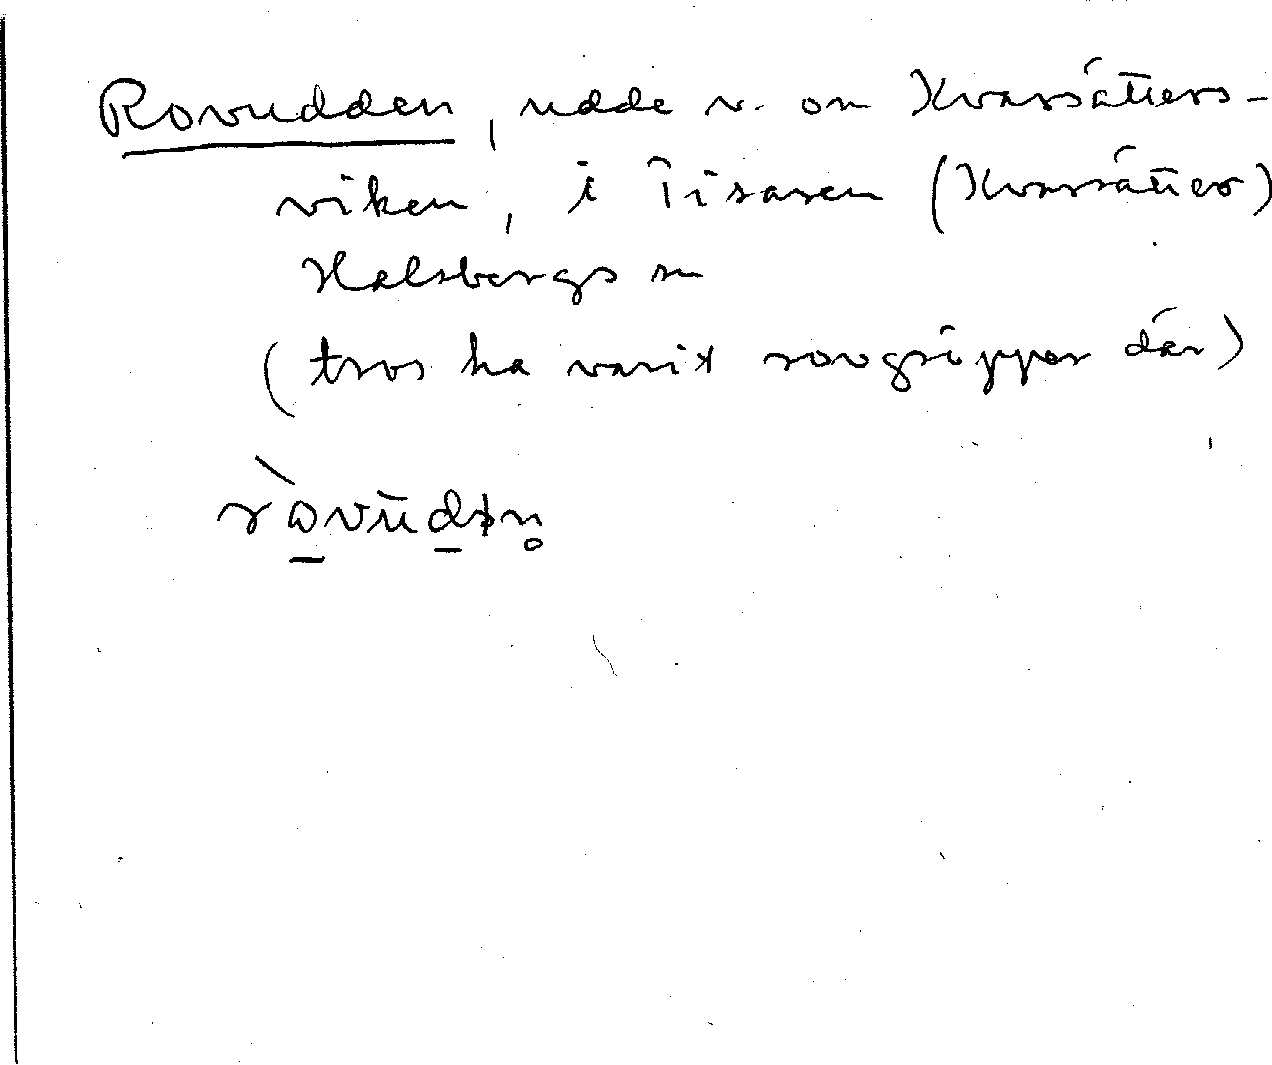 Rovudden, udde v. om Kvarsätters-
viken, i Tisaren (Kvarsätter)
Halsbergs sn
(tros ha varit rovgrippar där)
ròvūdən̥